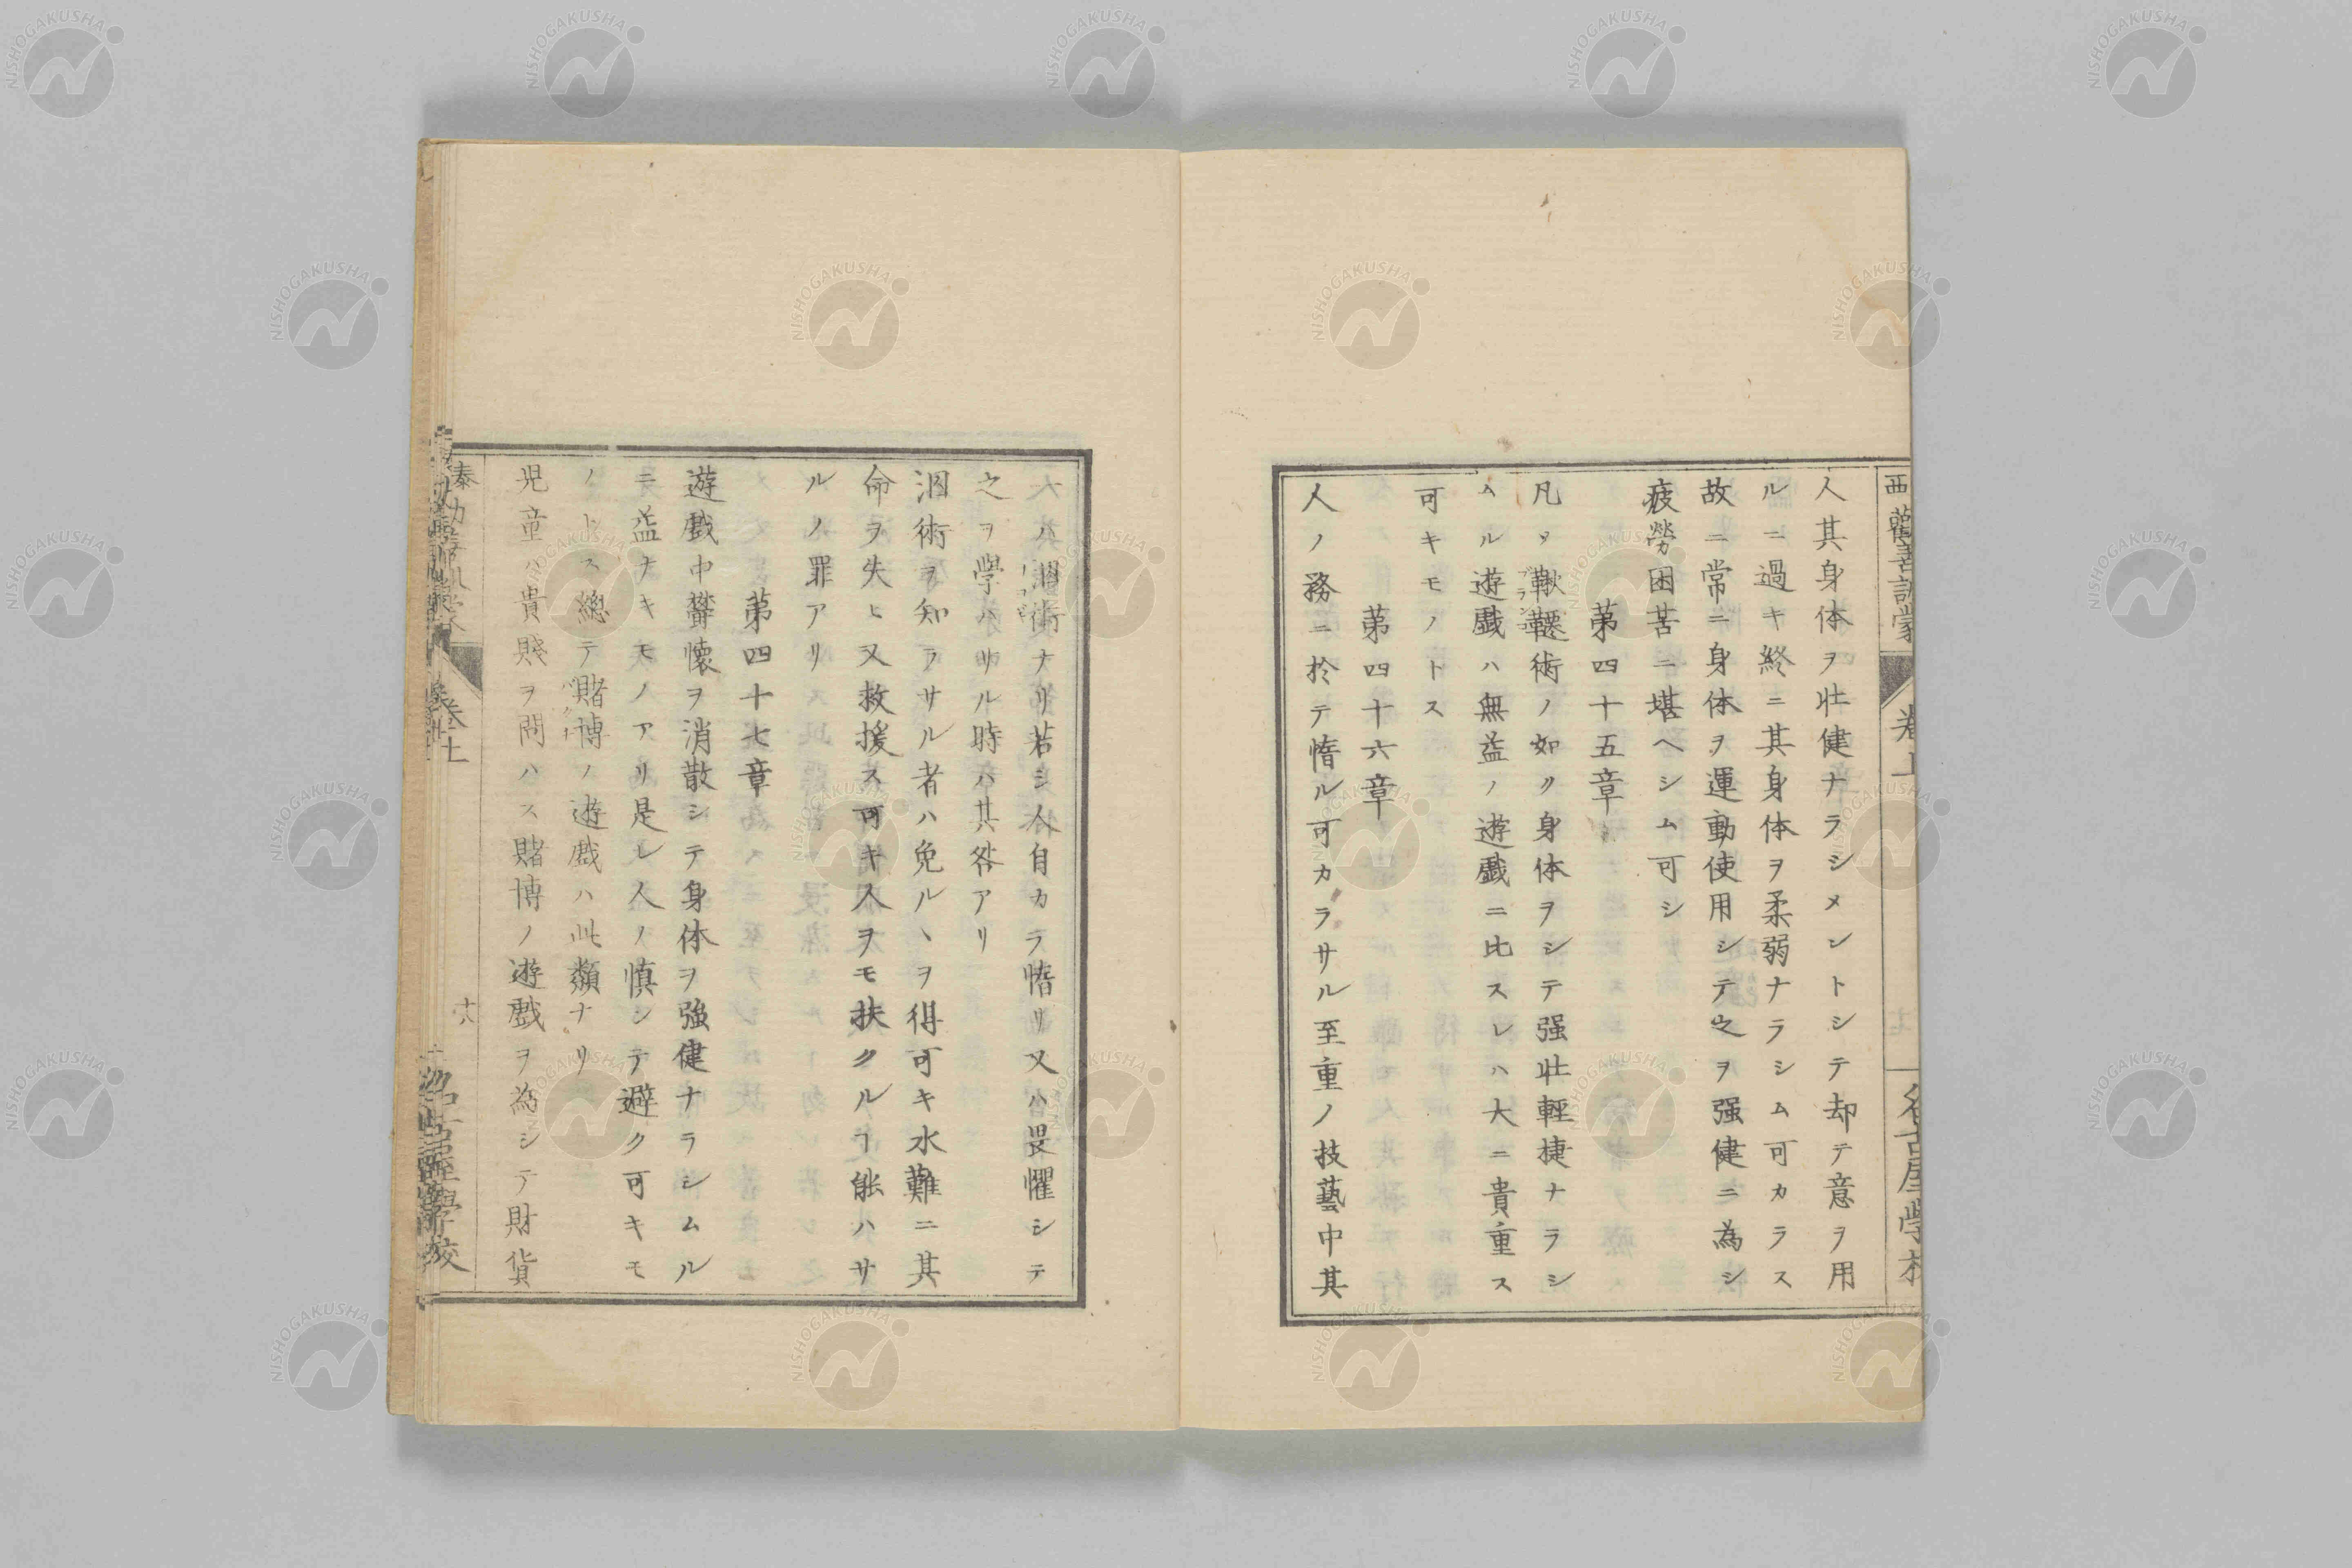 西
勸善訓蒙
卷上
名古屋學校
人其身体ヲ壮健ナラシメントシテ却テ意ヲ用
ルニ過キ終ニ其身体ヲ柔弱ナラシム可カラス
故ニ常ニ身体ヲ運動使用シテ之ヲ强健ニ為シ
疲勞困苦ニ堪ヘシム可シ
第四十五章
凡ソ鞦韆術ノ如ク身体ヲシテ强壮輕捷ナラシ
ブランコ
ムル遊戲ハ無益ノ遊戲ニ比スレハ大ニ貴重ス
可キモノトス
第四十六章
人ノ務ニ於テ惰ル可カラサル至重ノ技藝中其
一ハ泅術ナリ若シ人自カラ惰リ又ハ畏懼シテ
之ヲ學ハサル時ハ其咎アリ
泅術ヲ知ラサル者ハ免ルヽヲ得可キ水難ニ其
命ヲ失ヒ又救援ス可キ人ヲモ扶クルヿ能ハサ
ルノ罪アリ
第四十七章
遊戲中鬱懷ヲ消散シテ身体ヲ強健ナラシムル
ニ益ナキモノアリ是レ人ノ慎シテ避ク可キモ
ノトス總テ賭博ノ遊戲ハ此類ナリ
児童ハ貴賤ヲ問ハス賭博ノ遊戲ヲ為シテ財貨
泰
卷上
十八
名古屋學校
NISHOGAKUSHA